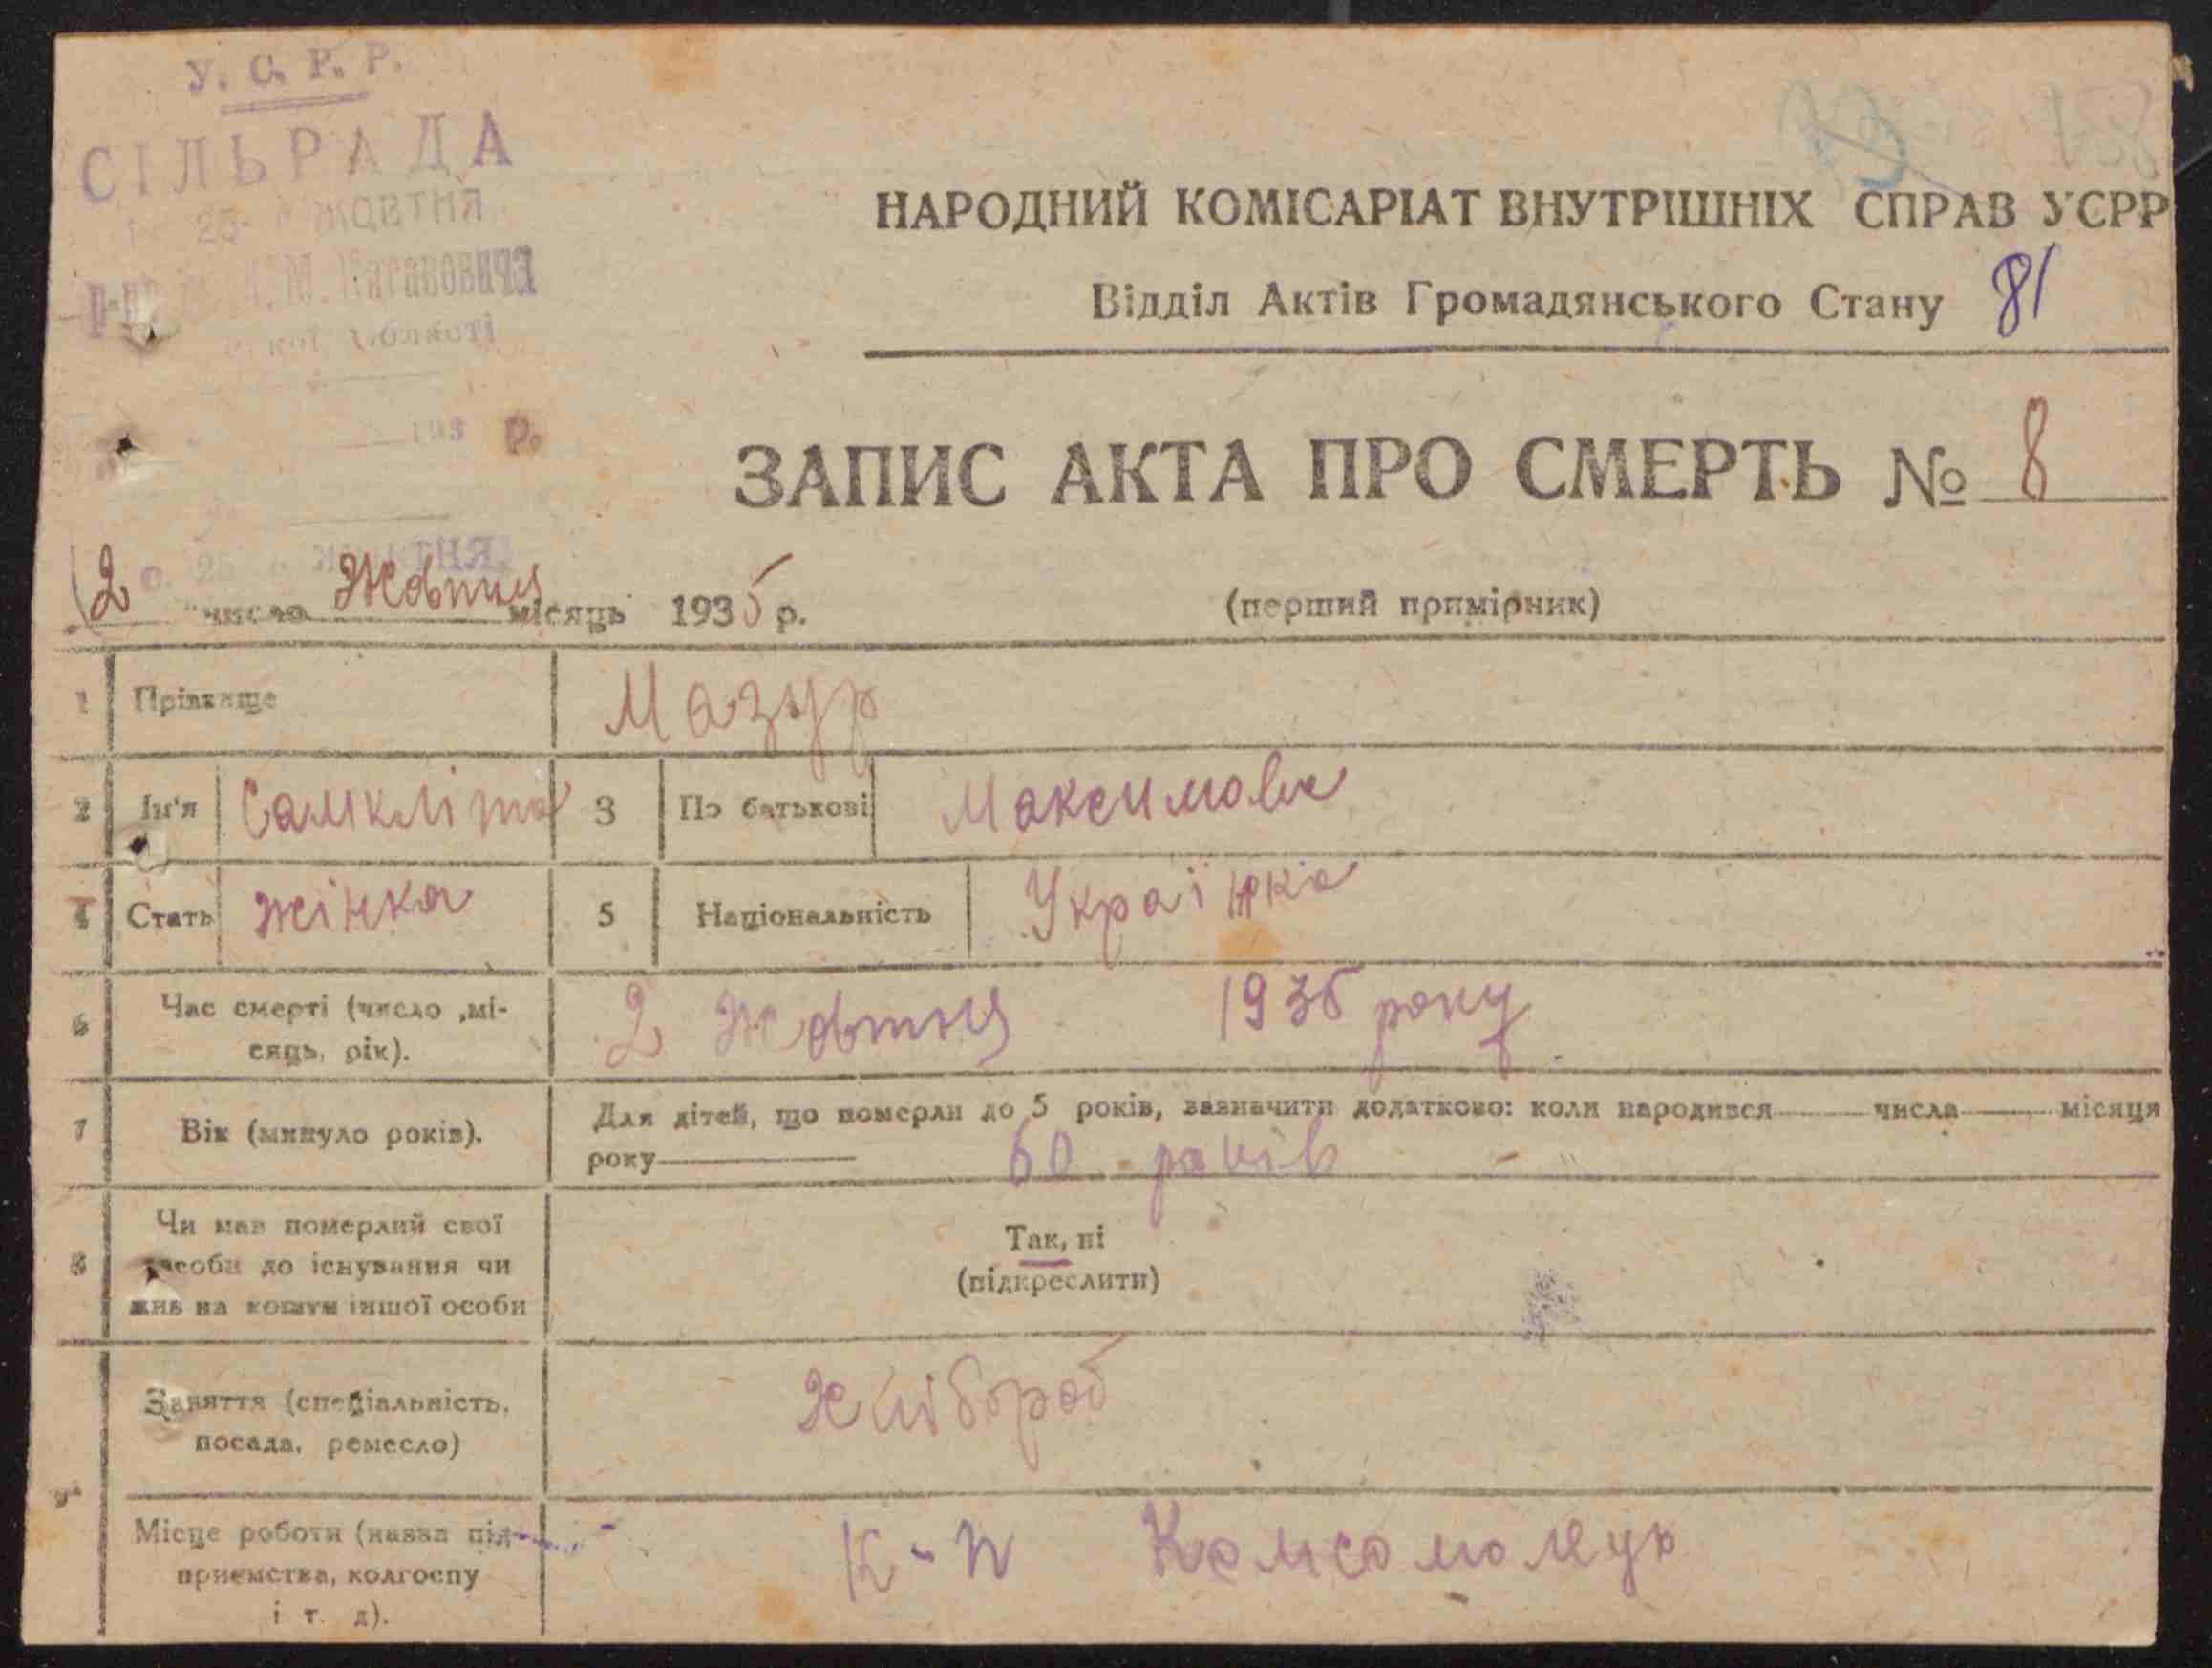 У. С. Р. Р.
СІЛЬРАДА
25- ЖОВТНЯ
М. Кагановича
області
193 р.
НАРОДНИЙ КОМІСАРІАТ ВНУТРІШНІХ СПРАВ УСРР
Відділ Актів Громадянського Стану 81
ЗАПИС АКТА ПРО СМЕРТЬ № 8
2 число Жовтня місяць 1935 р.
(перший примірник)
1 Прізвище Мазур
2 Ім'я Самкліта 3 По батькові Максимовна
4 Стать жінка 5 Національність Українка
6 Час смерті (число ,мі-
сяць, рік). 2 Жовтня 1935 року
7 Вік (минуло років). Для дітей, що померли до 5 років, зазначити додатково: коли народився числа місяця
року 60 років
8 Чи мав померлий свої
засоби до існування чи
жив на кошти іншої особи
Так, ні
(підкреслити)
9 Заняття (спеціальність,
посада, ремесло) Хлібороб
Місце роботи (назва під-
приємства, колгоспу
і т. д). К-п Комсомолець